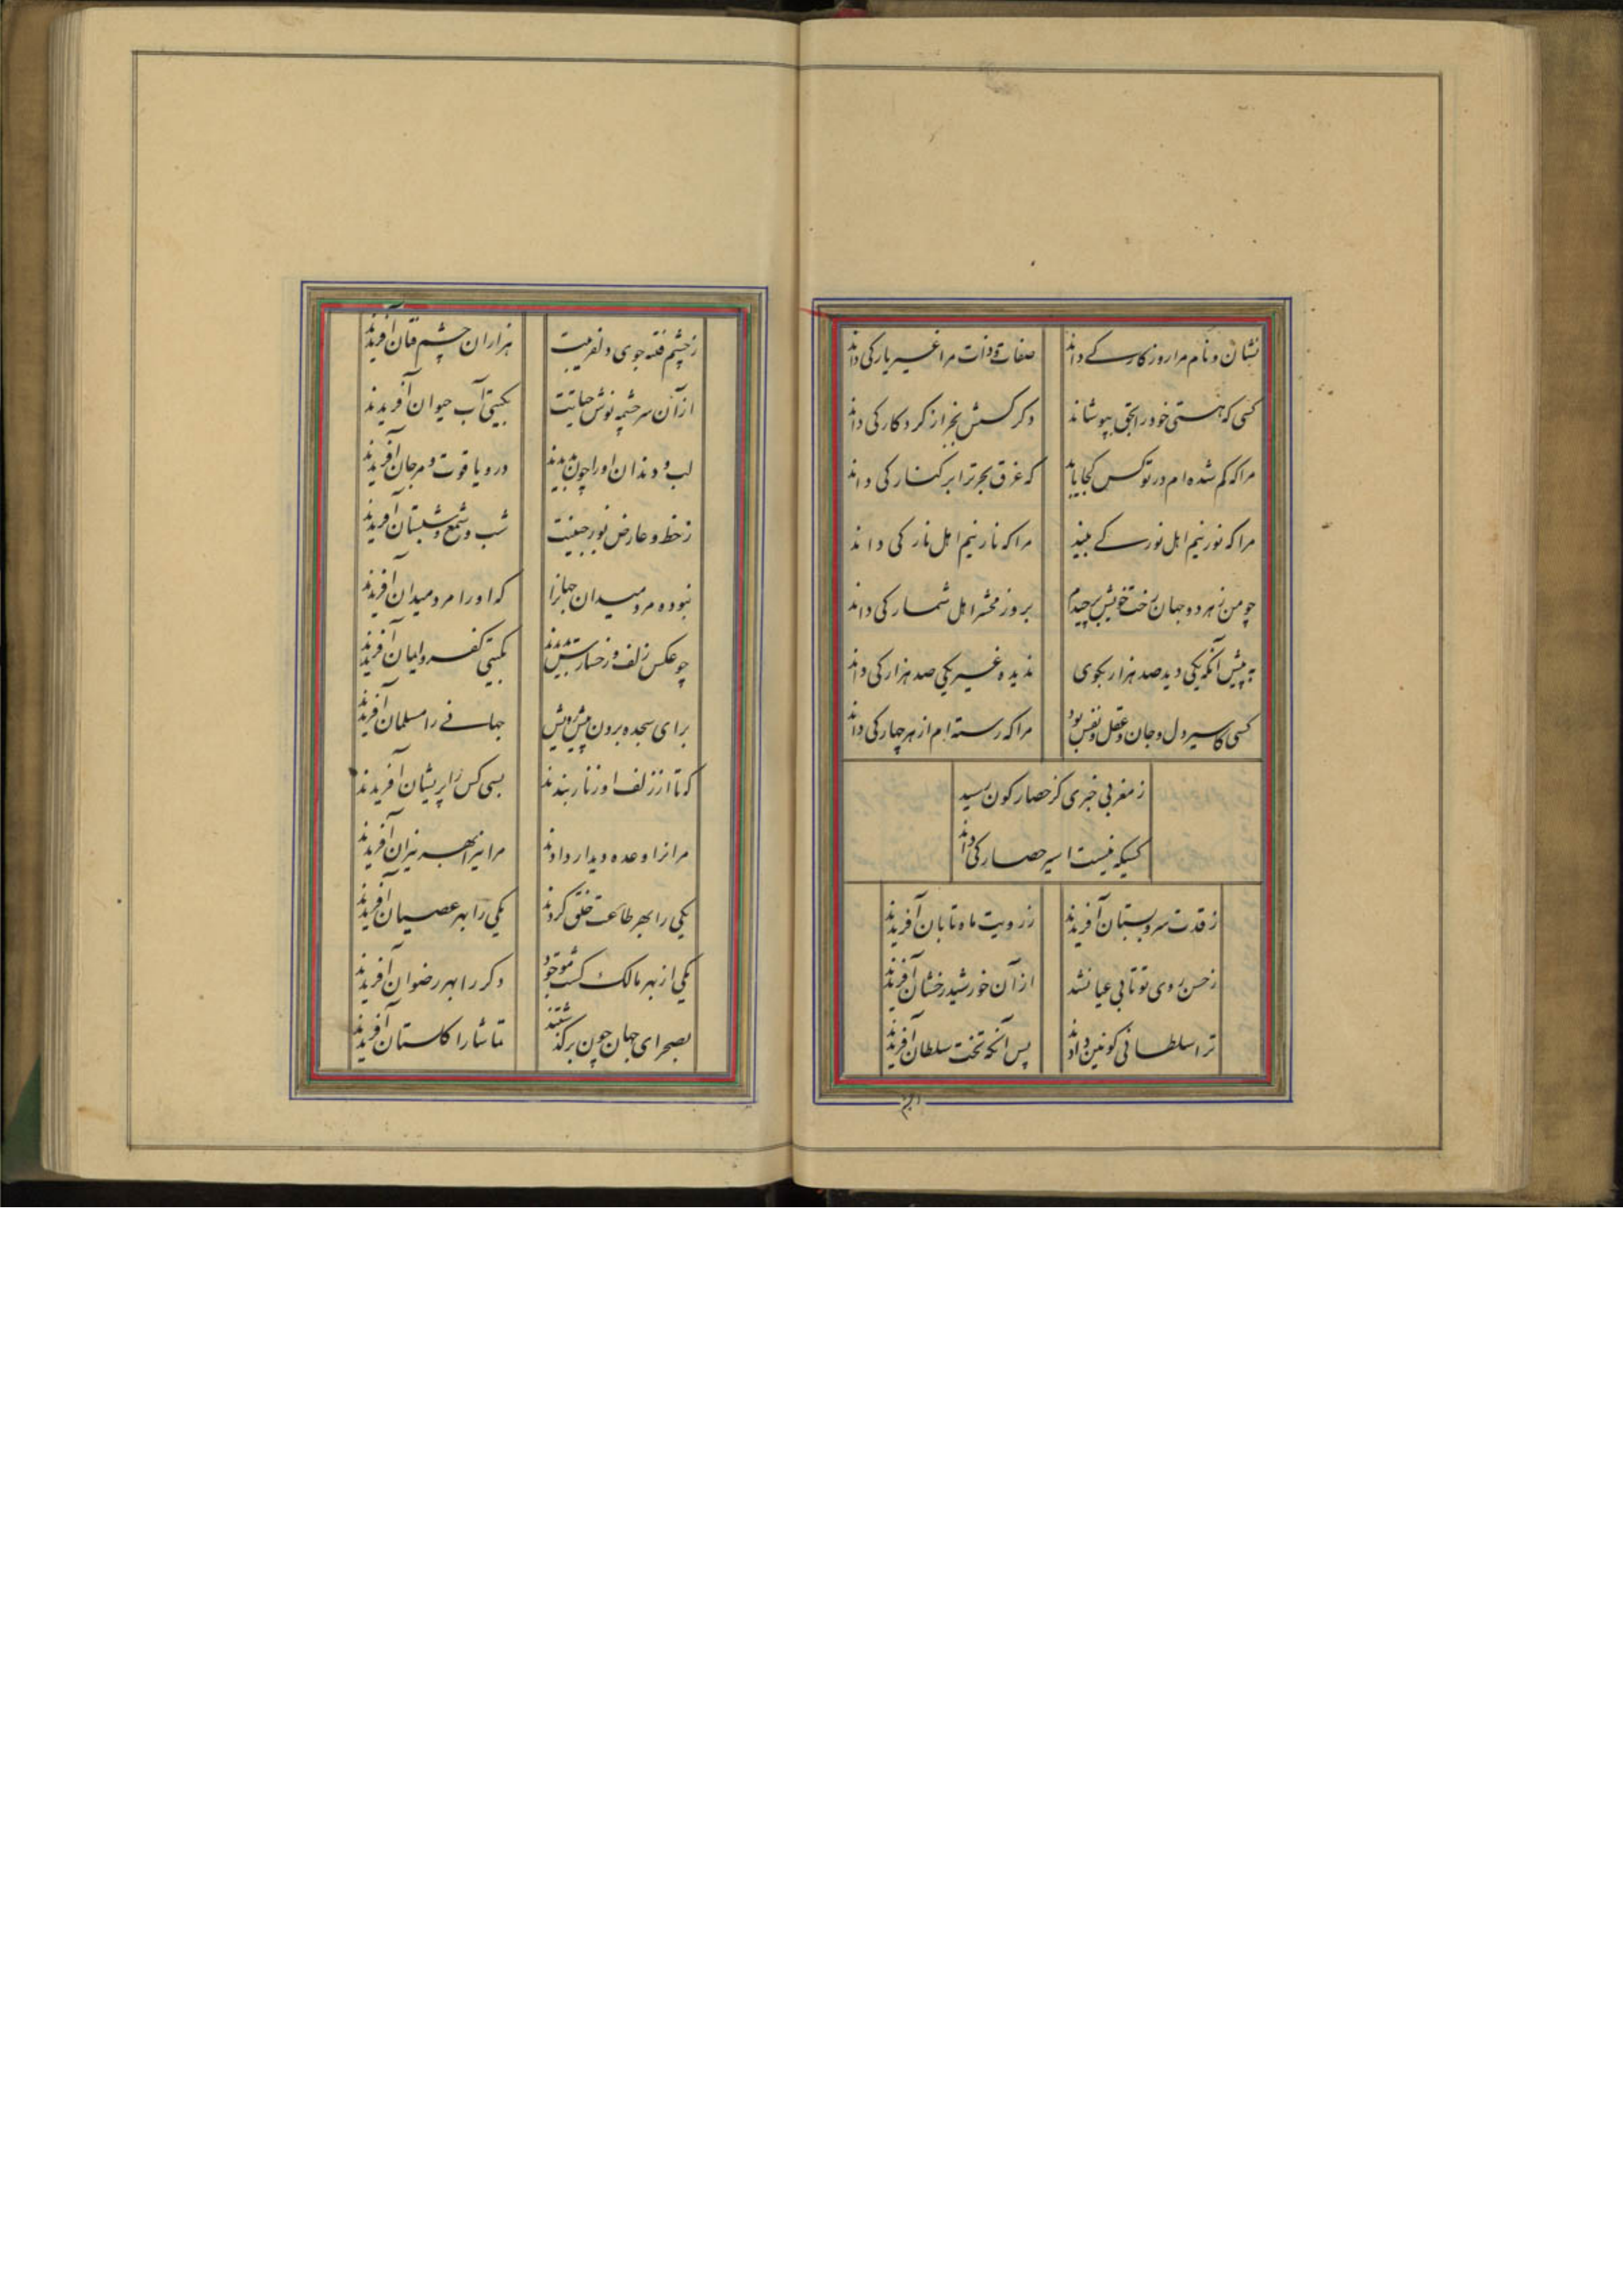 نشان و نام مرا روزگار کے داند
صفات و ذات مرا غیر یار کی داند
کسی که هستی خود را بحق بپوشاند
دگر کسش بجز از کردکار کی داند
مرا که گم شده ام در تو کس کجا یابد
که غرق بحر ترا بر کنار کی داند
مرا که نور نیم اهل نور کے بیند
مرا که نار نیم اهل نار کی داند
چو من ز هر دو جهان رخت خویش برچیدم
بروز محشر اهل شمار کی داند
به پیش آنکه یکی دید صد هزار بگوی
ندیده غیر یکی صد هزار کی داند
کسی کاسیر دل و جان و عقل و نفس بود
مرا که رسته ام از هر چهار کی داند
ز مغربی خبری کز حصار کون رسید
کسیکه نیست اسیر حصار کی داند
ز قدت سرو بستان آفریدند
ز رویت ماه تابان آفریدند
ز حسن روی تو تابی عیان شد
از آن خورشید رخشان آفریدند
ترا سلطانی کونین دادند
پس آنکه تخت سلطان آفریدند
ز چشم فتنه جوی دلفریبت
هزاران چشم فتان آفریدند
از آن سرچشمه نوش حیاتت
بگیتی آب حیوان آفریدند
لب و دندان او را چون بدیدند
در و یاقوت و مرجان آفریدند
ز خط و عارض نور جبینت
شب و شمع و شبستان آفریدند
نبوده مرد میدان جهانرا
که او را مرد میدان آفریدند
چو عکس زلف و رخسارش بدیدند
بگیتی کفر و ایمان آفریدند
برای سجده برون پیش رویش
جهانے را مسلمان آفریدند
که تا از زلف او زنار بندند
بسی کس را پریشان آفریدند
مرانرا وعده دیدار دادند
مر اینرا بهر نیران آفریدند
یکی را بهر طاعت خلق کردند
یکی را بهر عصیان آفریدند
یکی از بهر مالک گشت موجود
دگر را بهر رضوان آفریدند
بصحرای جهان چون برگذشتند
تماشا را گلستان آفریدند